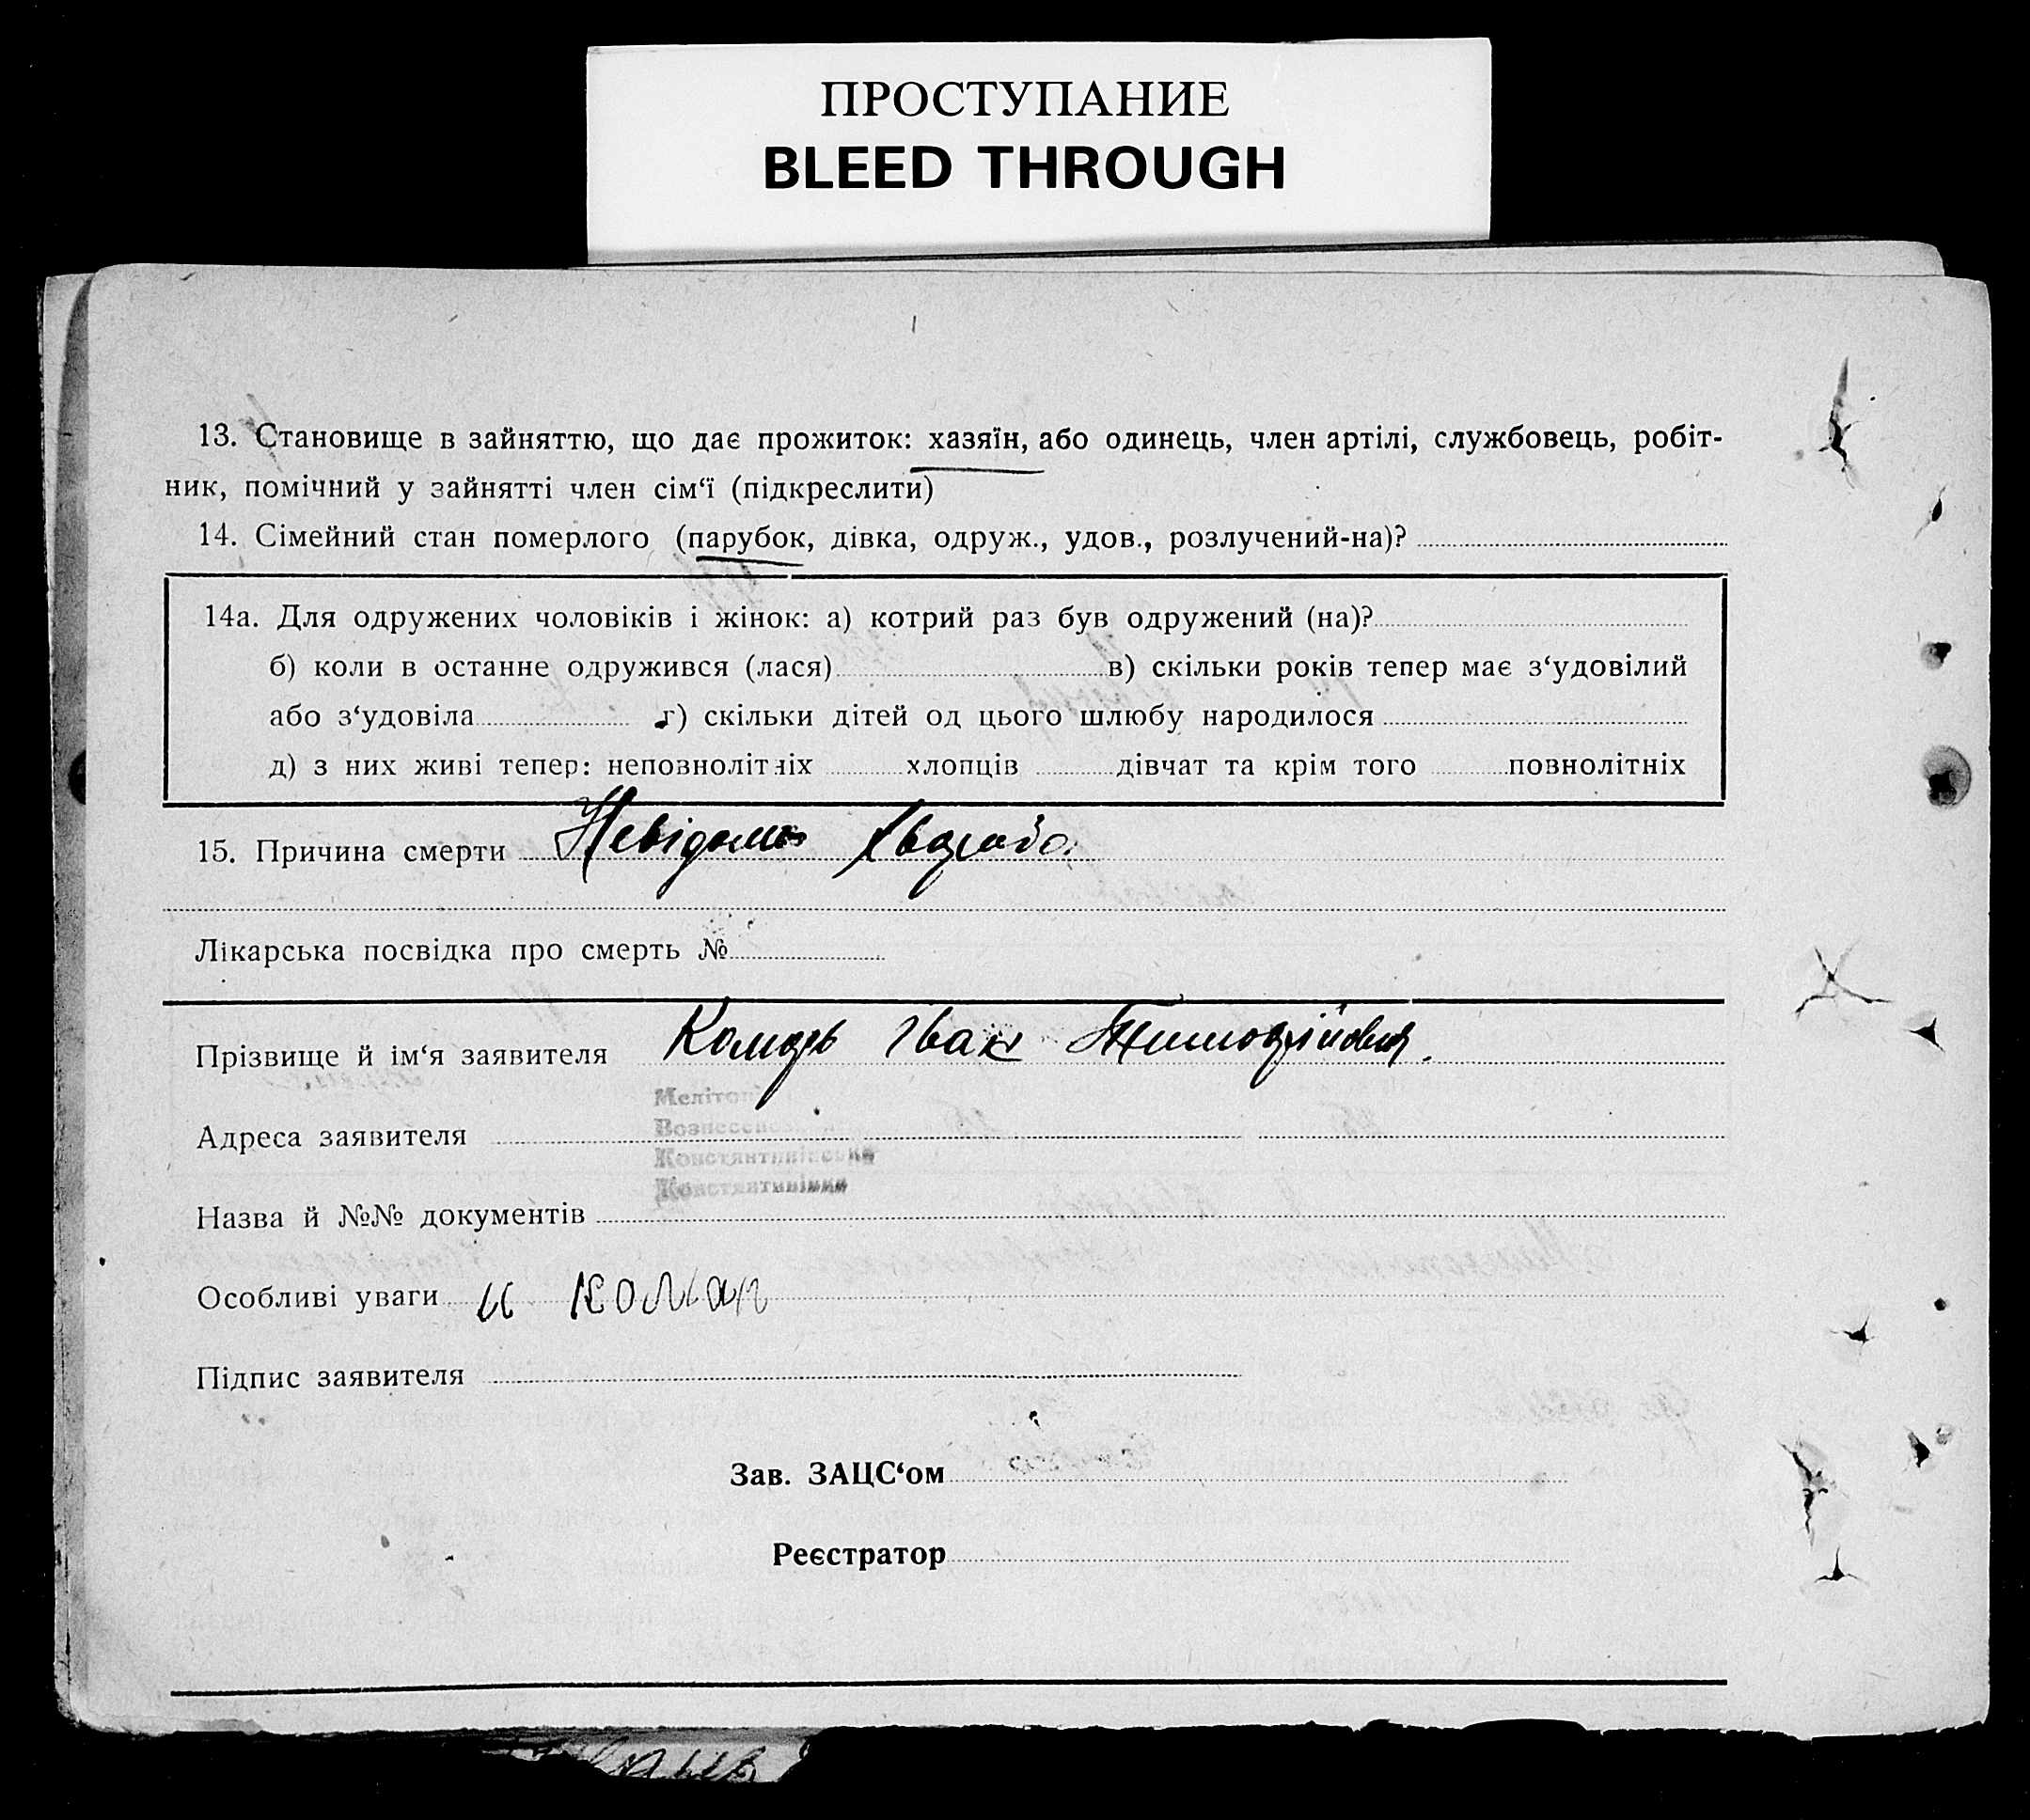 ПРОСТУПАНИЕ
BLEED THROUGH
13. Становище в зайняттю, що дає прожиток: хазяїн, або одинець, член артілі, службовець, робіт-
ник, помічний у зайнятті член сім‘ї (підкреслити)
14. Сімейний стан померлого (парубок, дівка, одруж., удов., розлучений-на)?
14а. Для одружених чоловіків і жінок: а) котрий раз був одружений (на)?
б) коли в останне одружився (лася) в) скільки років тепер має з‘удовілий
або з‘удовіла г) скільки дітей од цього шлюбу народилося
д) з них живі тепер: неповнолітніх хлопців дівчат та крім того повнолітніх
15. Причина смерти Невідома
Лікарська посвідка про смерть №
Прізвище й ім‘я заявителя Іван
Адреса заявителя
Константинівка
Назва й №№ документів
Особливі уваги
Підпис заявителя
Зав. ЗАЦС‘ом
Реєстратор